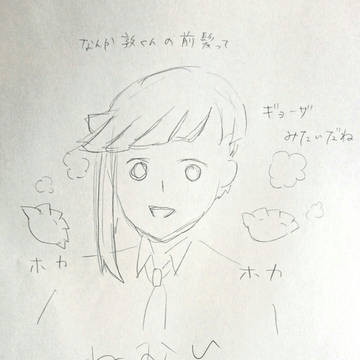 なんか敦くんの前髪って
ギョーザ
みたいだね
ホカ
ホカ